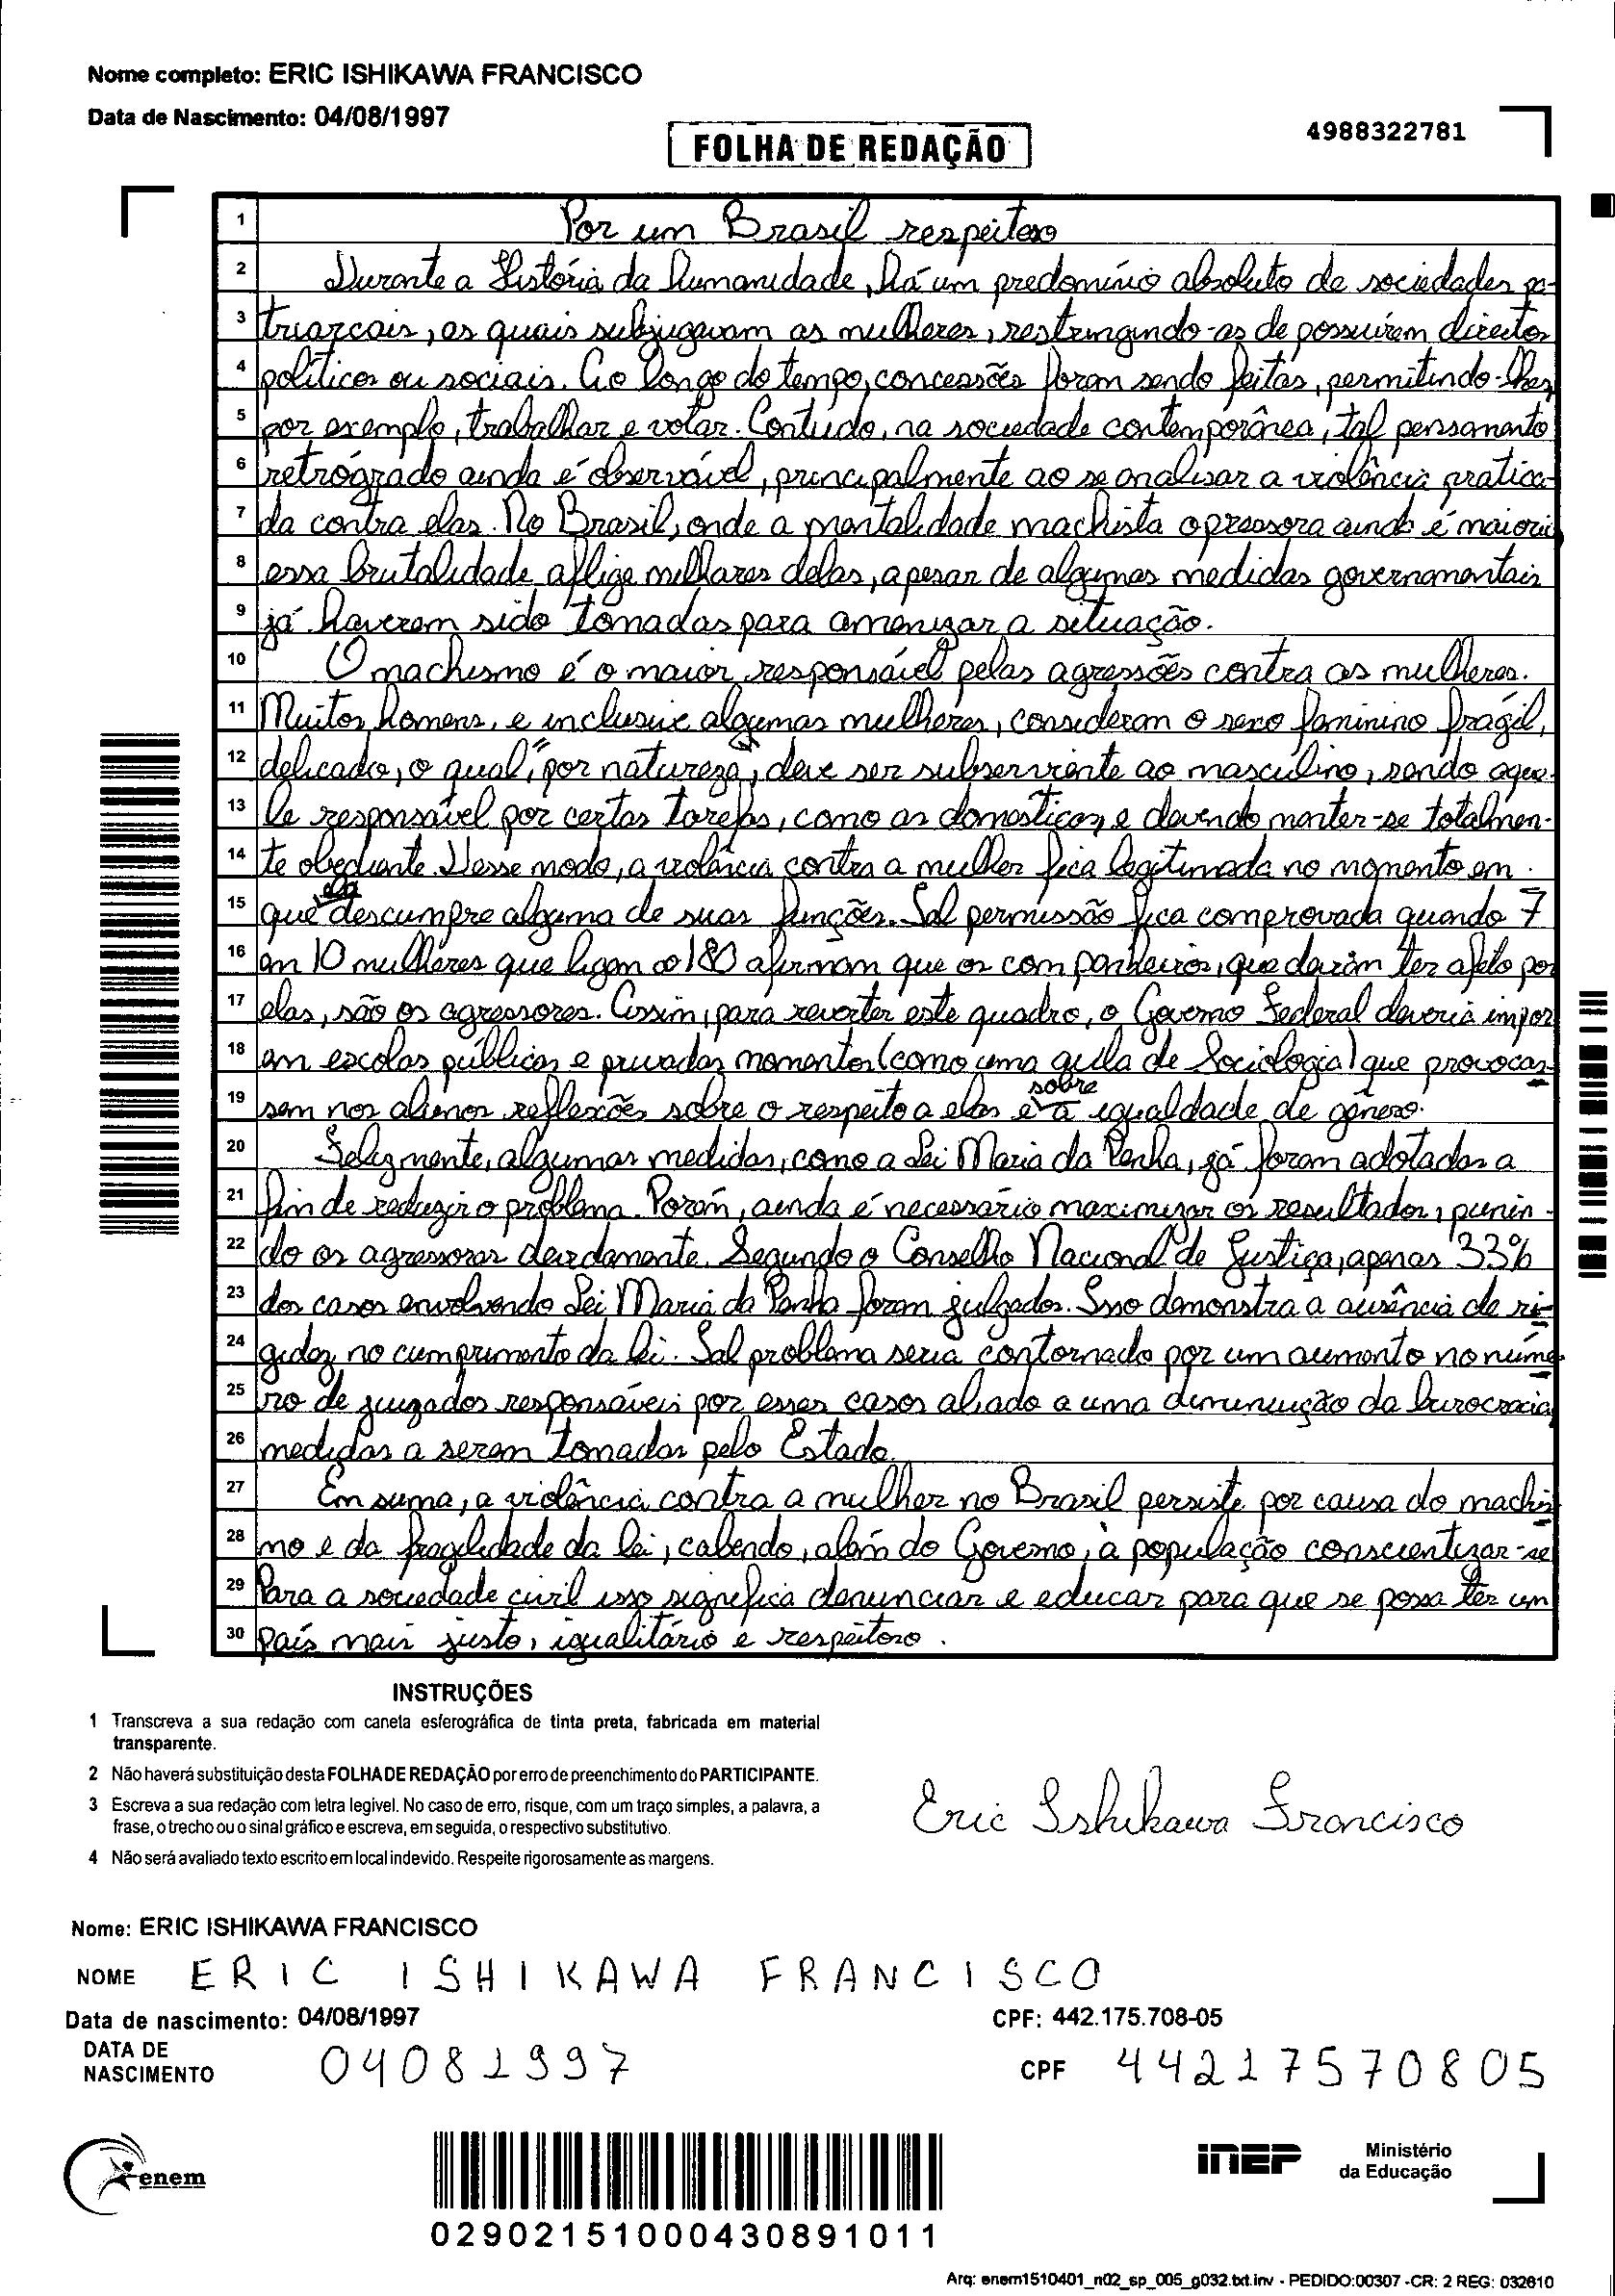 Nome completo: ERIC ISHIKAWA FRANCISCO
Data de Nascimento: 04/08/1997
4988322781
FOLHA DE REDAÇÃO
1 Por um Brasil respeitoso
2 Durante a História da humanidade, há um predomínio absoluto de sociedades pa-
3 triarcais, as quais subjugavam as mulheres, restringindo-as de possuírem direitos
4 políticos ou sociais. Ao longo do tempo, concessões foram sendo feitas, permitindo-lhes,
5 por exemplo, trabalhar e votar. Contudo, na sociedade contemporânea, tal pensamento
6 retrógrado ainda é observável, principalmente ao se analisar a violência pratica-
7 da contra elas. No Brasil, onde a mentalidade machista opressora ainda é maioria,
8 essa brutalidade aflige milhares delas, apesar de algumas medidas governamentais
9 já haverem sido tomadas para amenizar a situação.
10 O machismo é o maior responsável pelas agressões contra as mulheres.
11 Muitos homens, e inclusive algumas mulheres, consideram o sexo feminino frágil,
12 delicado, o qual, "por natureza", deve ser subserviente ao masculino, sendo aque-
13 le responsável por certas tarefas, como as domésticas, e devendo manter-se totalmen-
14 te obediente. Desse modo, a violência contra a mulher fica legitimada no momento em
15 que ela descumpre alguma de suas funções. Tal permissão fica comprovada quando 7
16 em 10 mulheres que ligam ao 180 afirmam que os companheiros, que deviam ter afeto por
17 elas, são os agressores. Assim, para reverter este quadro, o Governo Federal deveria impor
18 em escolas públicas e privadas momentos (como uma aula de Sociologia) que provocas-
19 sem nos alunos reflexões sobre o respeito a elas e sobre a igualdade de gênero.
20 Felizmente, algumas medidas, como a Lei Maria da Penha, já foram adotadas a
21 fim de reduzir o problema. Porém, ainda é necessário maximizar os resultados, punin-
22 do os agressores devidamente. Segundo o Conselho Nacional de Justiça, apenas 33%
23 dos casos envolvendo Lei Maria da Penha foram julgados. Isso demonstra a ausência de ri-
24 gidez no cumprimento da lei. Tal problema seria contornado por um aumento no núme-
25 ro de juizados responsáveis por esses casos aliado a uma diminuição da burocracia,
26 medidas a serem tomadas pelo Estado.
27 Em suma, a violência contra a mulher no Brasil persiste por causa do machis-
28 mo e da fragilidade da lei, cabendo, além do Governo, à população conscientizar-se.
29 Para a sociedade civil isso significa denunciar e educar para que se possa ter um
30 país mais justo, igualitário e respeitoso.
INSTRUÇÕES
1 Transcreva a sua redação com caneta esferográfica de tinta preta, fabricada em material
transparente.
2 Não haverá substituição desta FOLHA DE REDAÇÃO por erro de preenchimento do PARTICIPANTE.
3 Escreva a sua redação com letra legível. No caso de erro, risque, com um traço simples, a palavra, a
frase, o trecho ou o sinal gráfico e escreva, em seguida, o respectivo substitutivo.
4 Não será avaliado texto escrito em local indevido. Respeite rigorosamente as margens.
Eric Ishikawa Francisco
Nome: ERIC ISHIKAWA FRANCISCO
NOME ERIC ISHIKAWA FRANCISCO
Data de nascimento: 04/08/1997 CPF: 442.175.708-05
DATA DE
NASCIMENTO 04081997 CPF 44217570805
enem
INEP
Ministério
da Educação
029021510004308910 11
Arq: enem1510401_n02_sp_005_g032.txt.inv - PEDIDO:00307 -CR: 2 REG: 032610